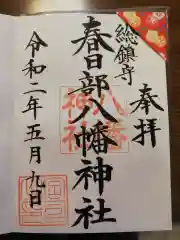 奉拝
総鎮守
春日部八幡神社
令和二年五月九日